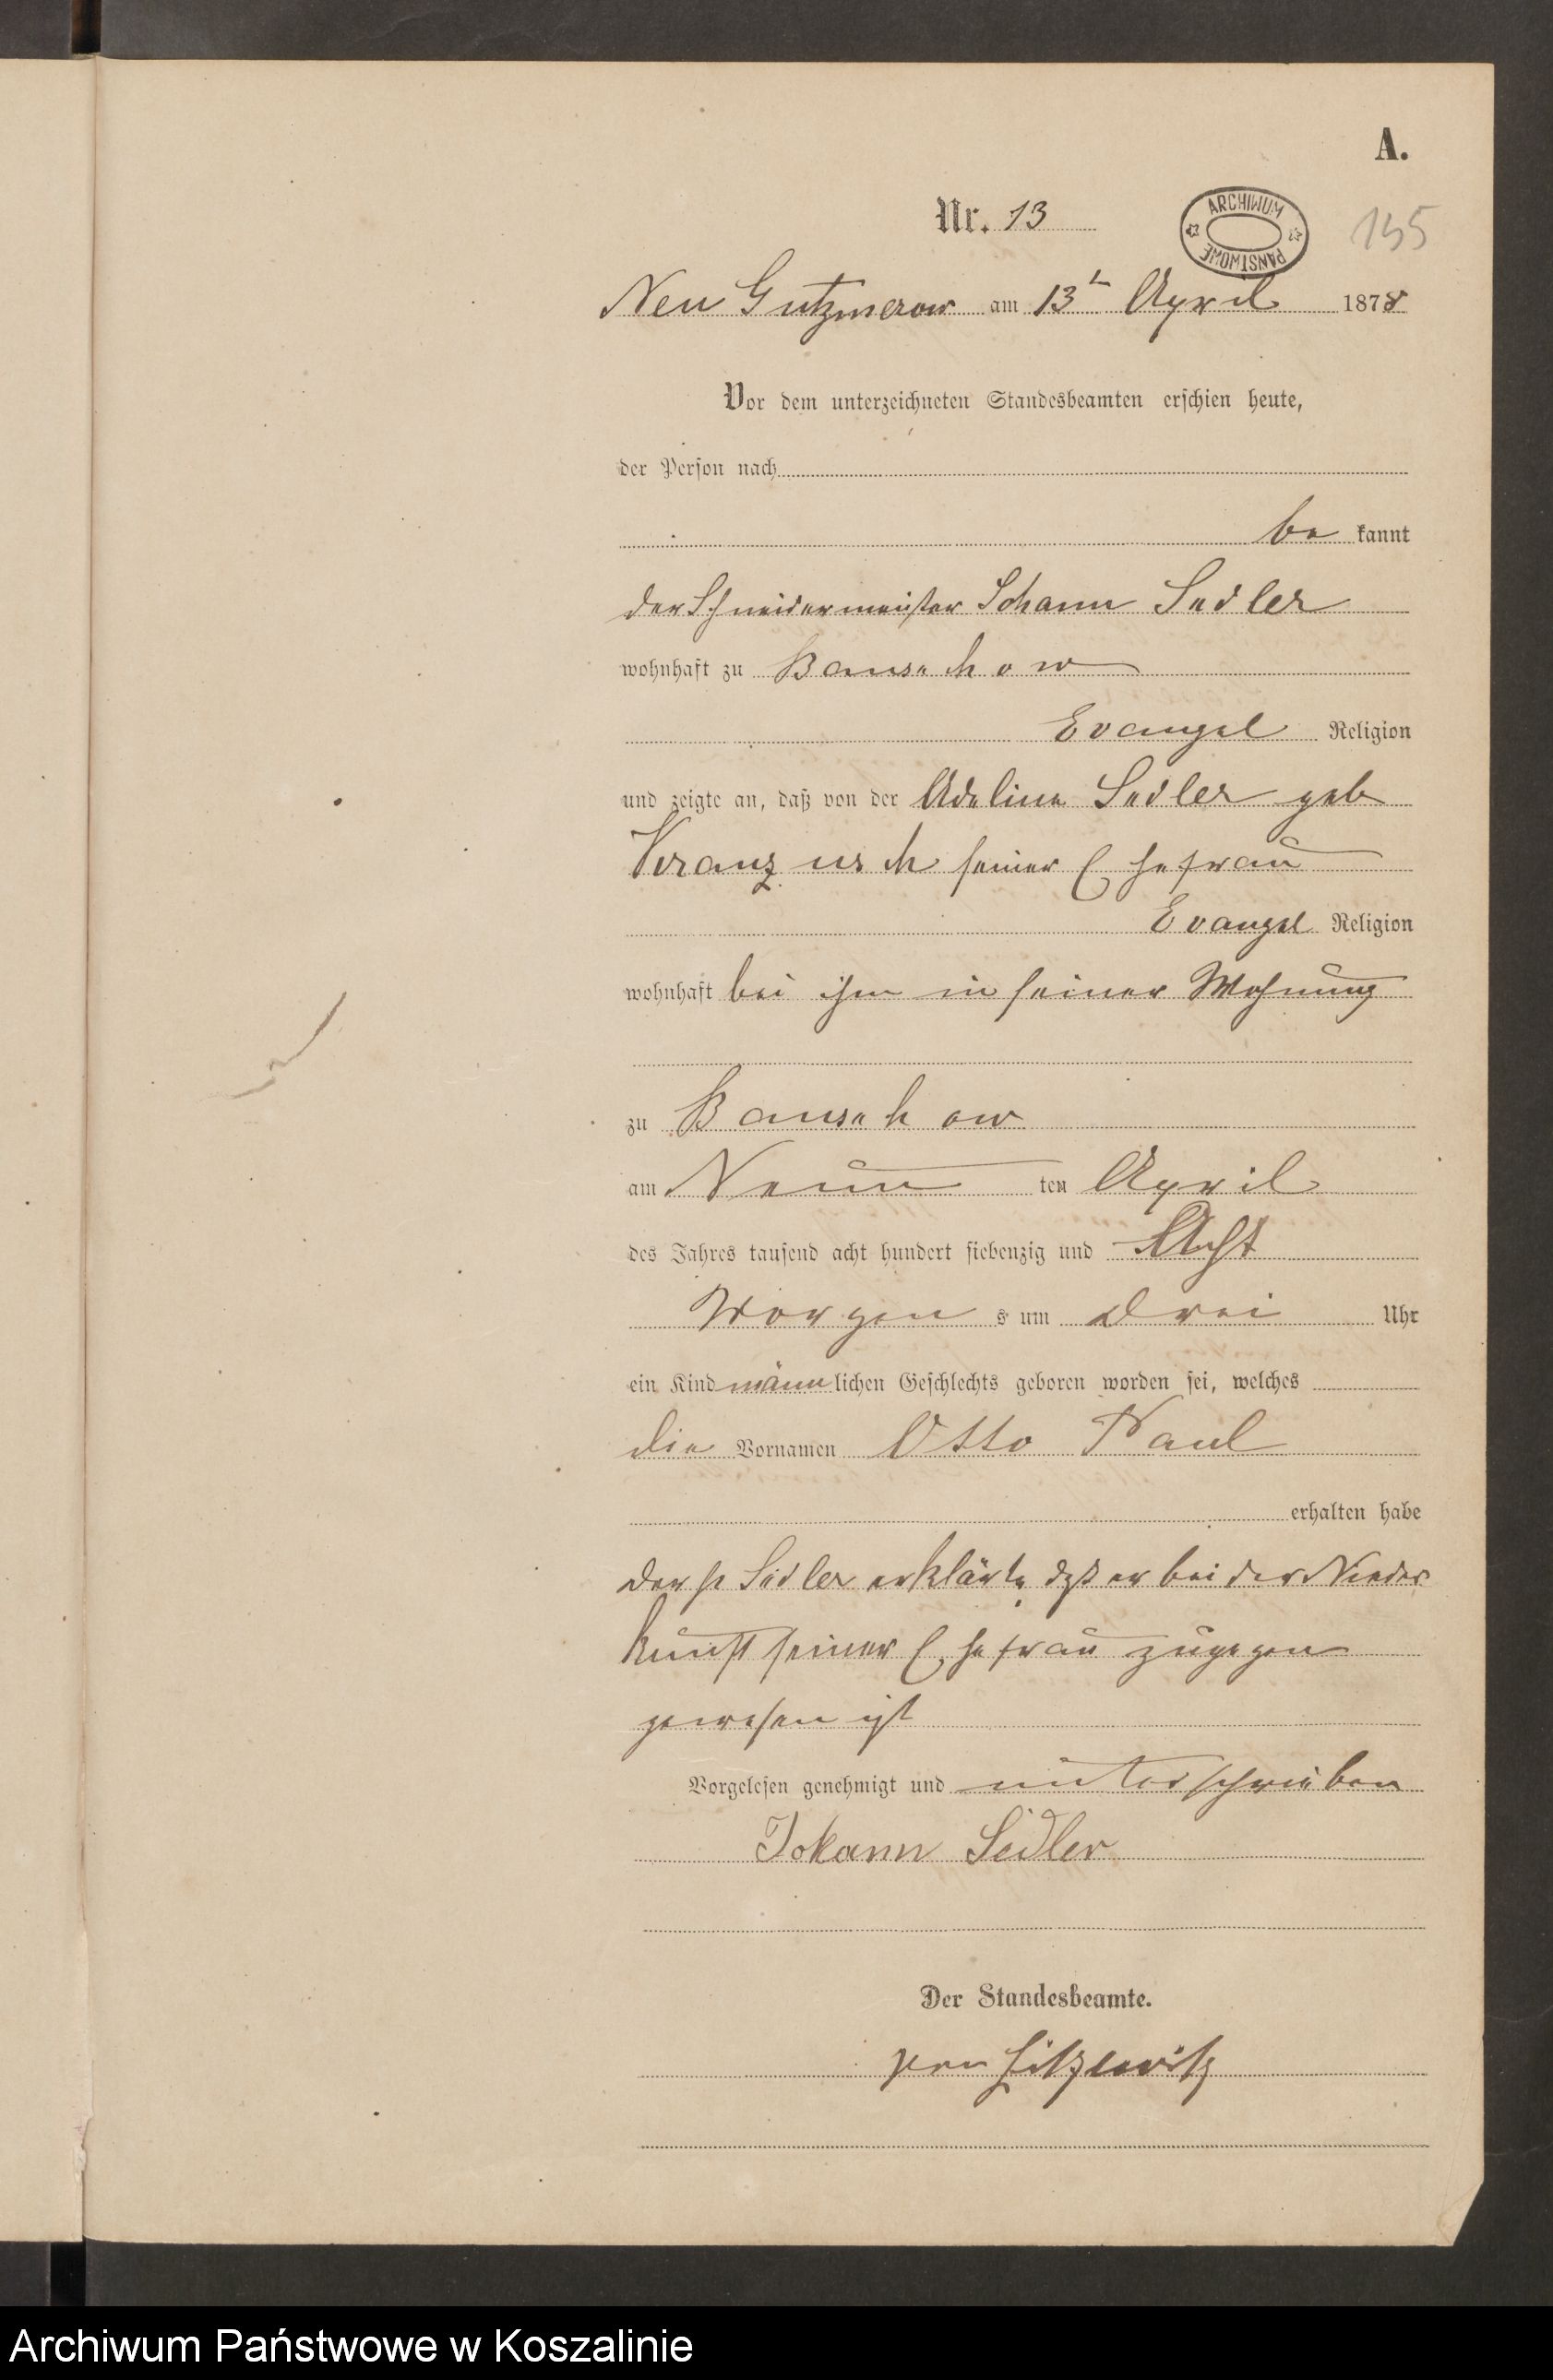 A.
Nr. 13
ARCHIWUM PAŃSTWOWE
135
Neu Gutzmerow am 13t April 1878
Vor dem unterzeichneten Standesbeamten erschien heute,
der Person nach
be kannt
der Schneidermeister Johann Sedler
wohnhaft zu Bansekow
Evangel Religion
und zeigte an, daß von der Adeline Sedler geb
seiner Ehefrau
Evangel Religion
wohnhaft bei ihm in seiner Wohnung
zu Bansekow
am Neun ten April
des Jahres tausend acht hundert siebenzig und Acht
Morgen s um Drei Uhr
ein Kind männ lichen Geschlechts geboren worden sei, welches
die Vornamen Otto Paul
erhalten habe
Sedler erklärte daß er bei der Nieder
kunft seiner Ehefrau zugegen
gewesen ist
Vorgelesen genehmigt und unterschrieben
Johann Sedler
Der Standesbeamte.
von Zitzewitz
Archiwum Państwowe w Koszalinie